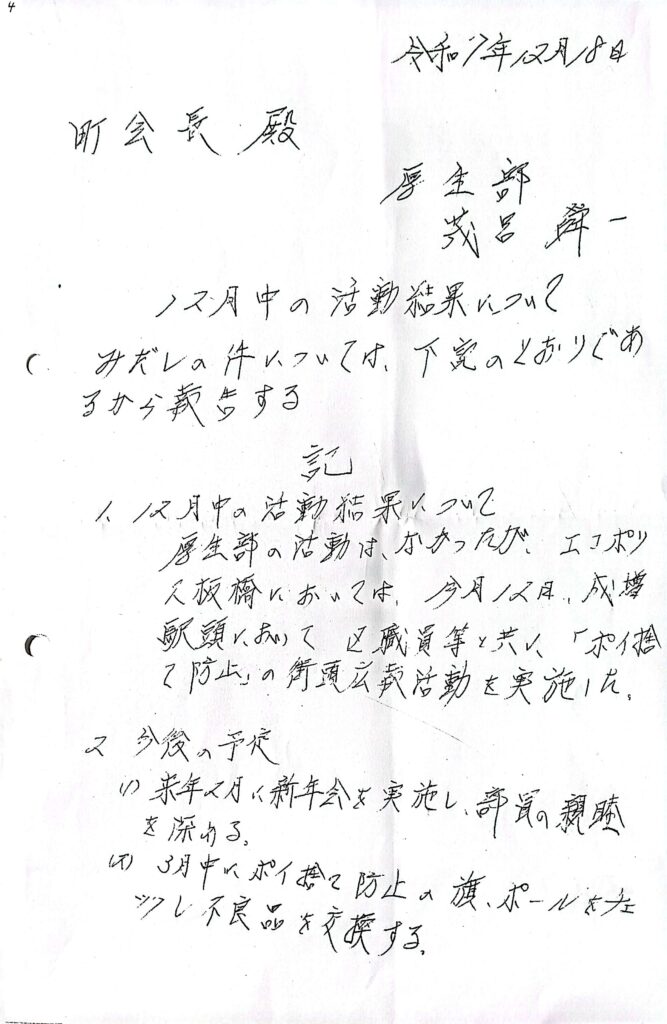 4
令和7年12月18日
町会長 殿
厚生部
茂呂 舜一
12月中の活動結果について
みだしの件については、下記のとおりであ
るから報告する
記
1、12月中の活動結果について
厚生部の活動は、なかったが、エコポリ
ス板橋においては、今月12日、成増
駅頭において区職員等と共に、「ポイ捨
て防止」の街頭広報活動を実施した。
2 今後の予定
(1) 来年2月に新年会を実施し、部員の親睦
を深める。
(2) 3月中にポイ捨て防止の旗、ポールをチェ
ックし不良品を交換する。